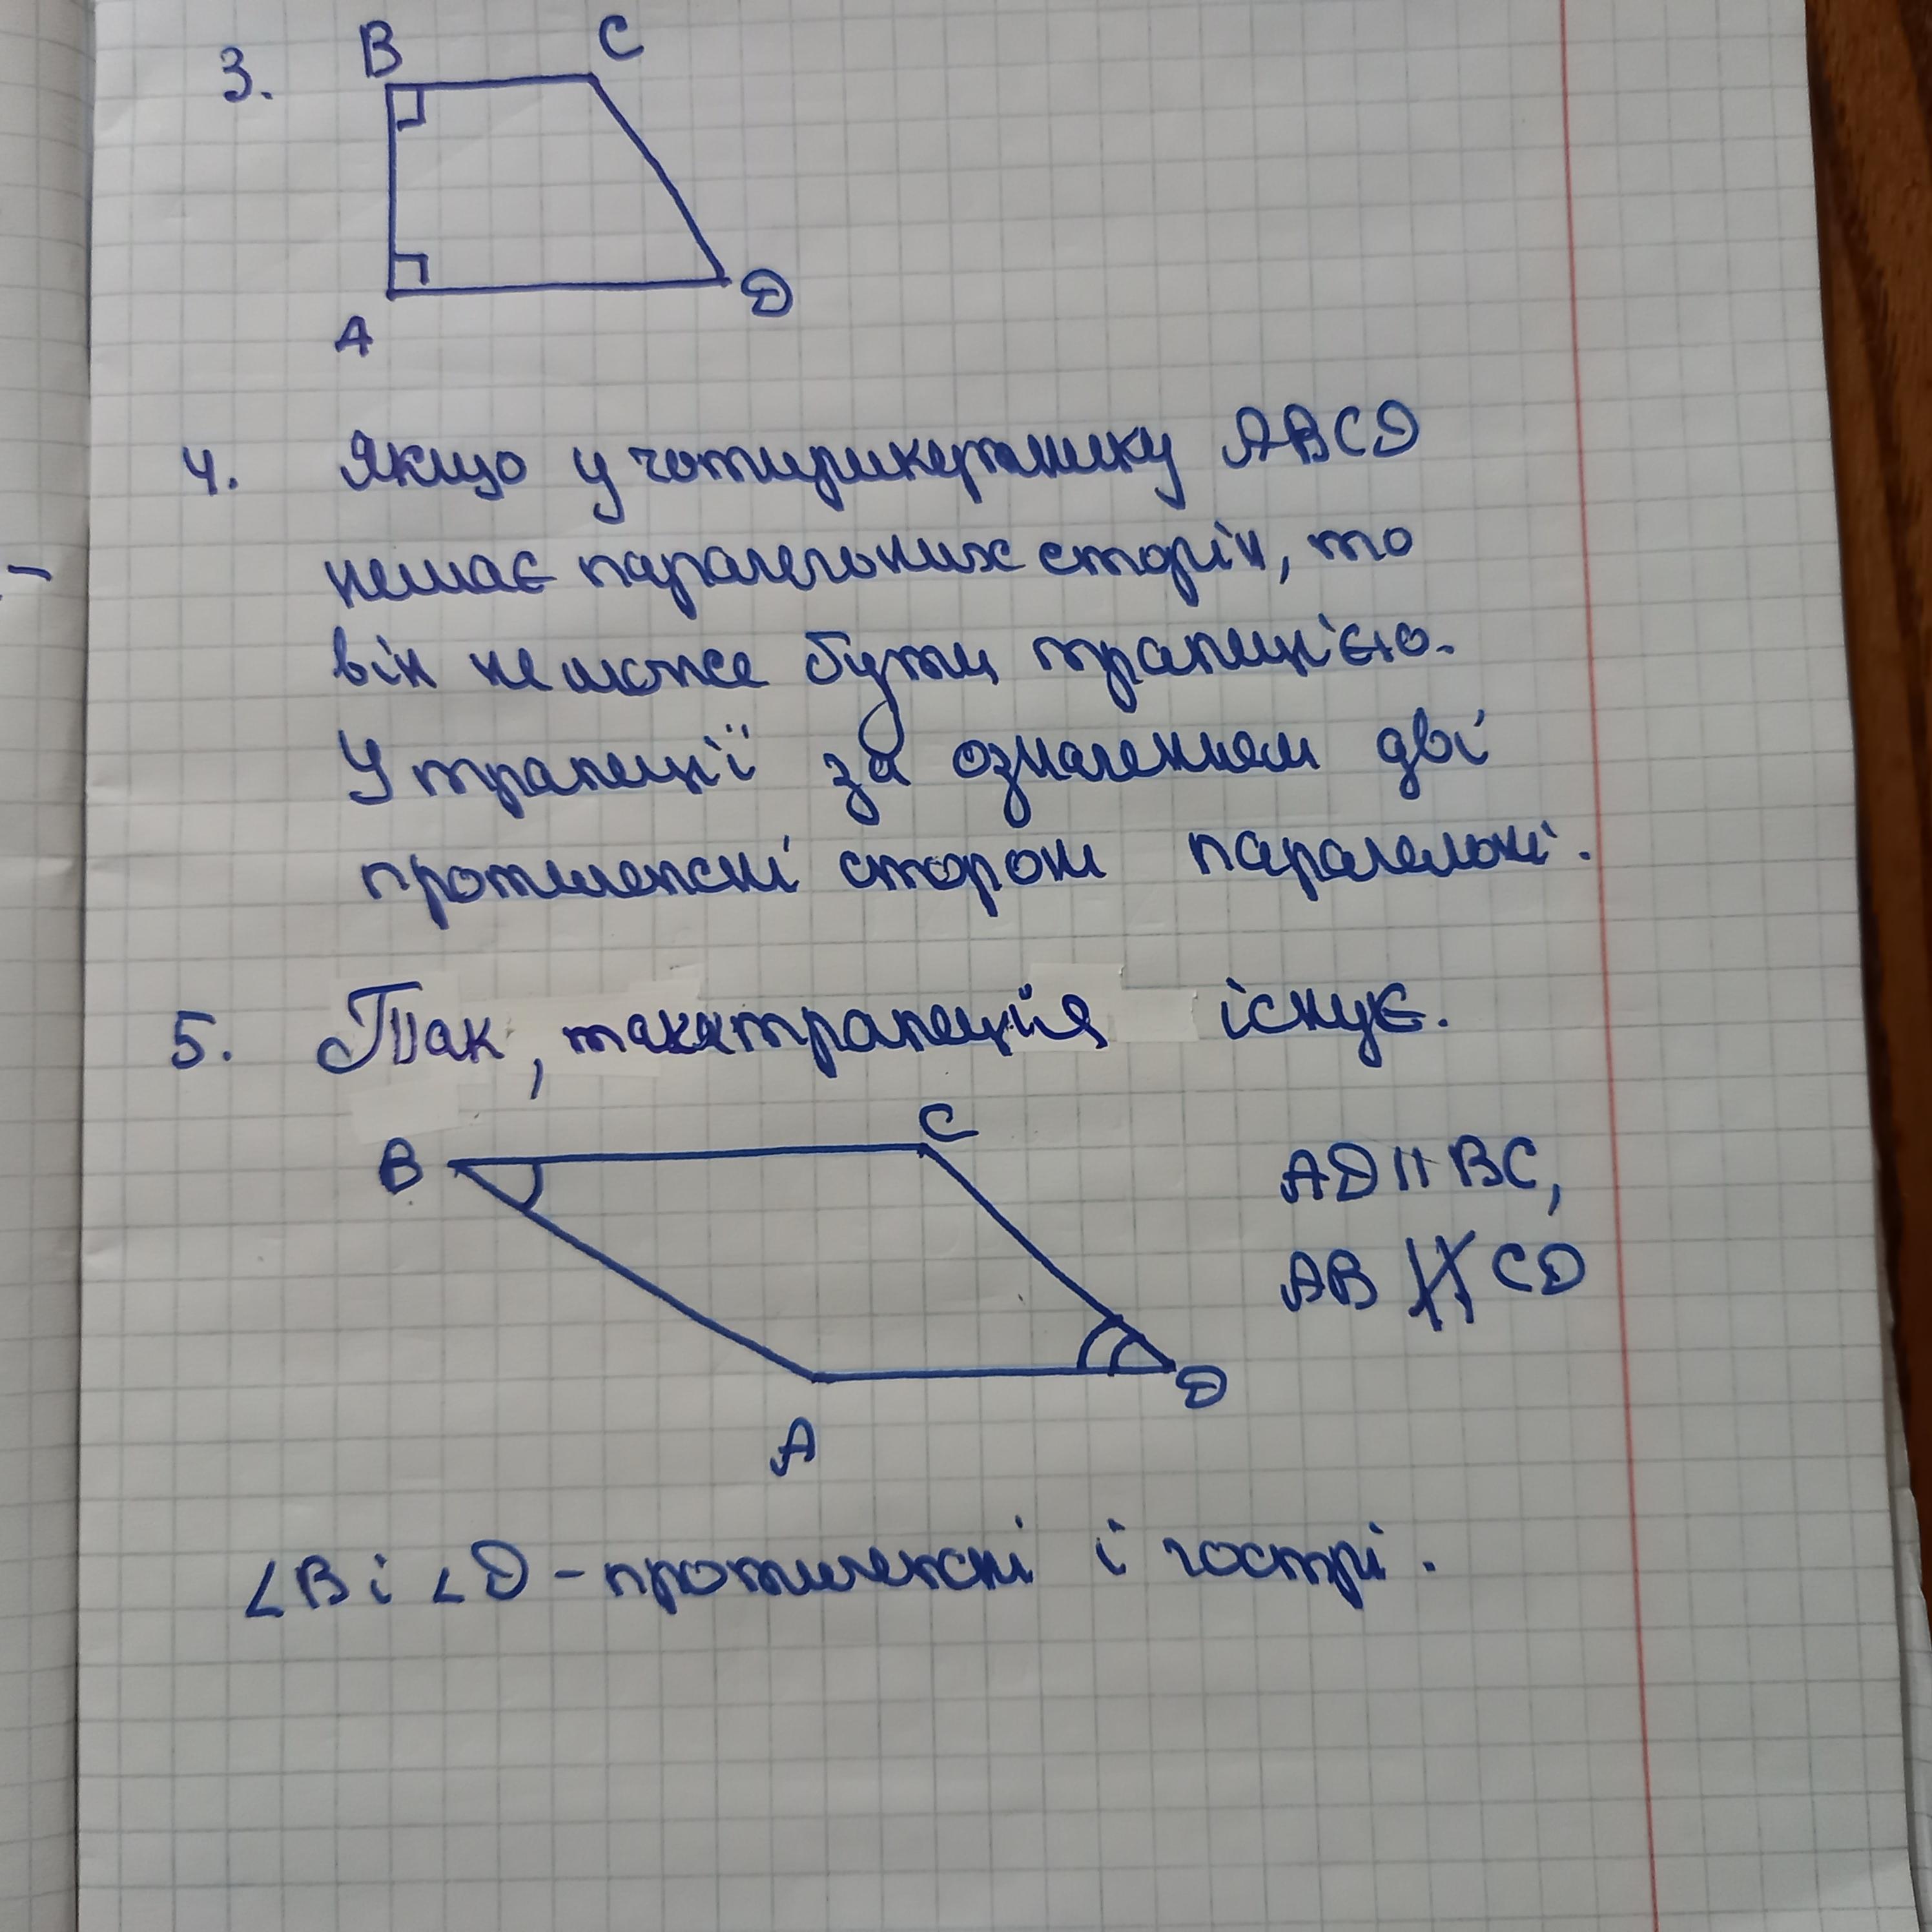 3.
B
C
A
D
4. Якщо у чотирикутнику ABCD
немає паралельних сторін, то
він не може бути трапецією.
У трапеції за означенням дві
протилежні сторони паралельні.
5. Так, така трапеція існує.
B
C
AD || BC,
AB ∦ CD
D
A
∠B і ∠D - протилежні і гострі.